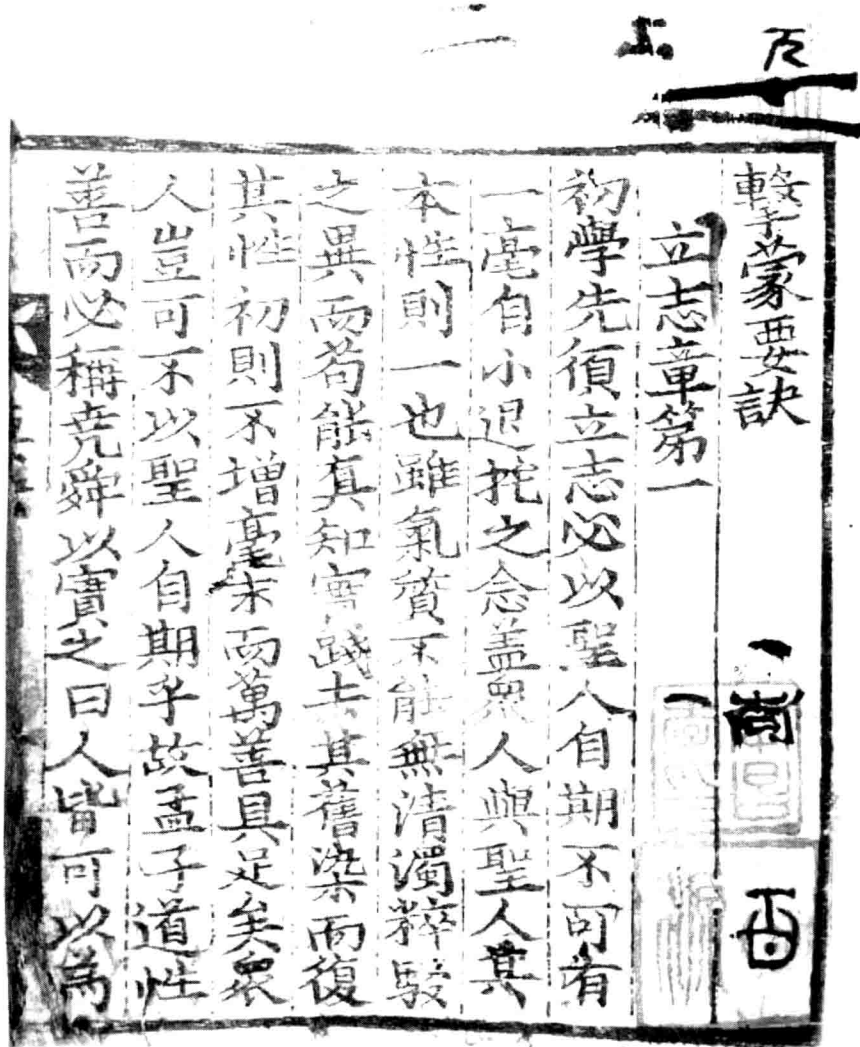 擊蒙要訣
立志章第一
初學先須立志必以聖人自期不可有
一毫自小退托之念盖衆人與聖人其
本性則一也雖氣質不能無清濁粹駁
之異而苟能真知實踐去其舊染而復
其性初則不增毫末而萬善具足矣衆
人豈可不以聖人自期乎故孟子道性
善而必稱堯舜以實之曰人皆可以為